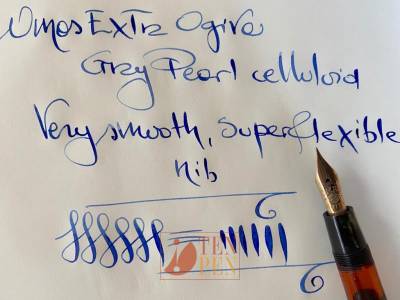 Omas Extra Ogiva
Gray Pearl celluloid
Very smooth, superflexible
nib
TEN
PEN